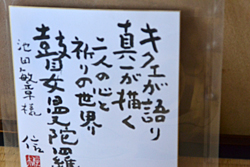 キクヱが語り
真一が描く
二人の心と
祈りの世界
瞽女曼陀羅
池田敏章様